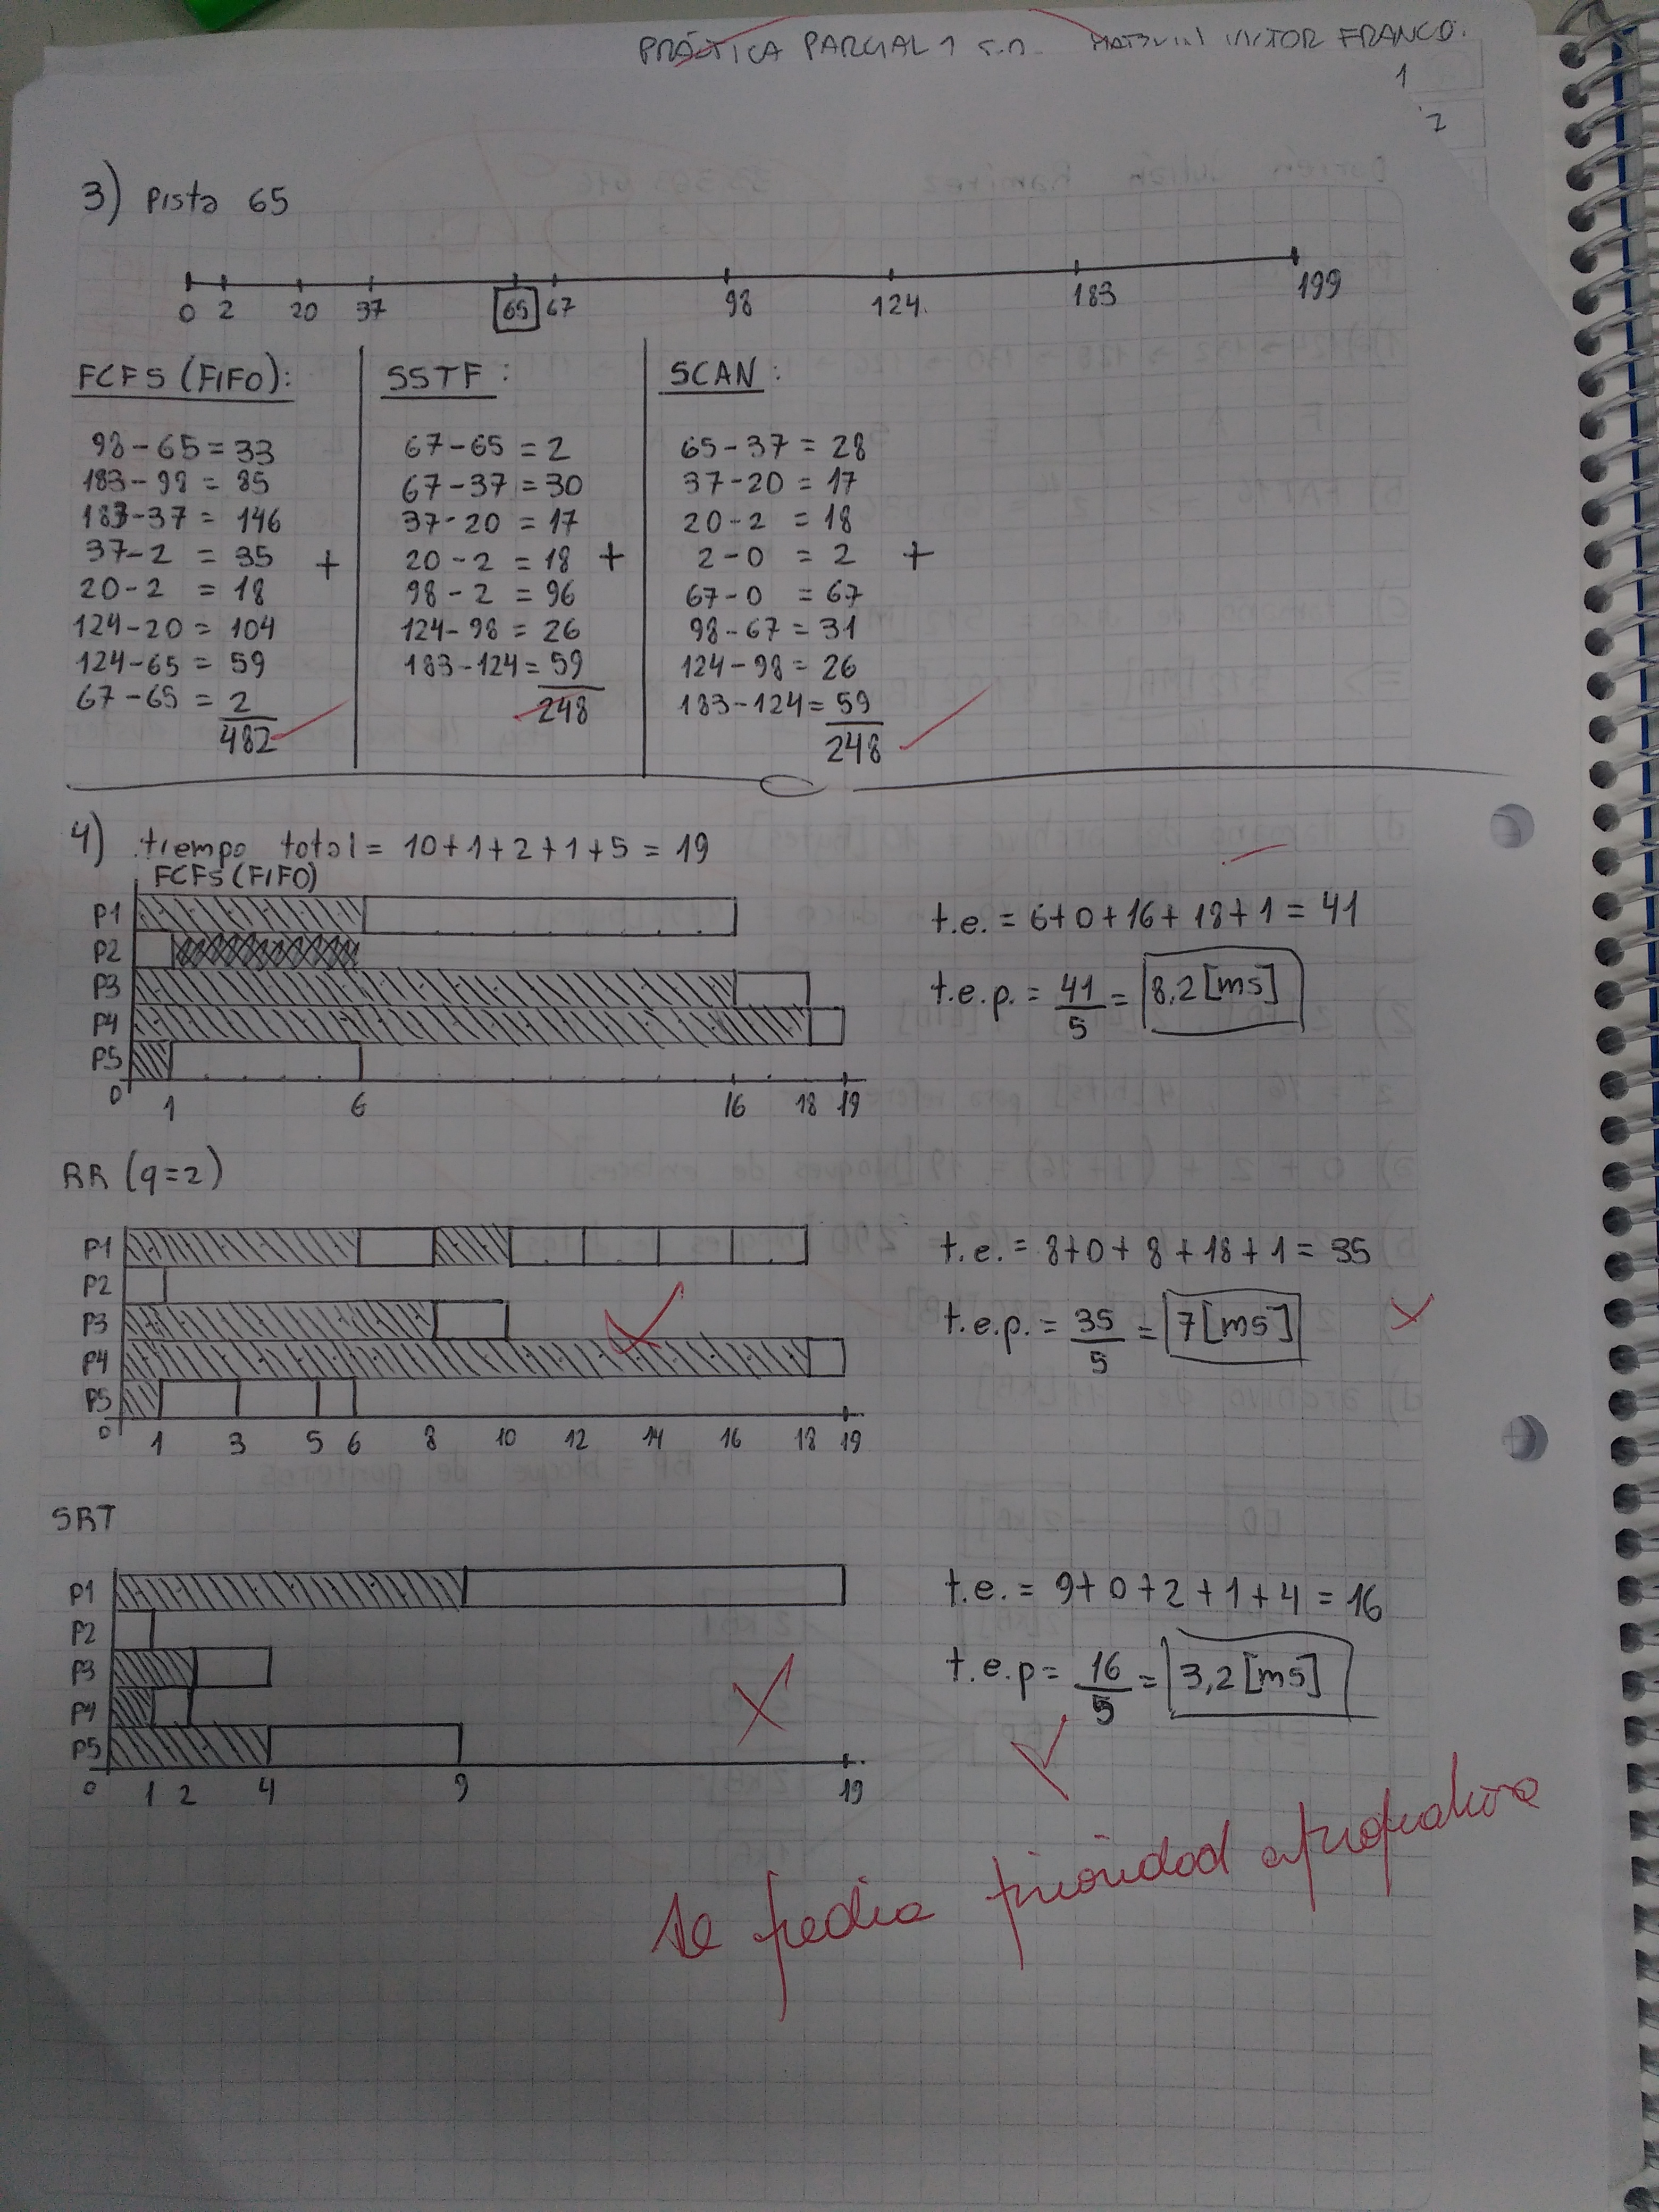 PRÁCTICA PARCIAL 1 S.O. VICTOR FRANCO.
1
2
3) Pista 65
0 2 20 37 65 67 98 124. 183 199
FCFS (FIFO):
98-65=33
183-98=85
183-37=146
37-2=35
20-2=18
124-20=104
124-65=59
67-65=2
482
+
SSTF:
67-65=2
67-37=30
37-20=17
20-2=18
98-2=96
124-98=26
183-124=59
248
+
SCAN:
65-37=28
37-20=17
20-2=18
2-0=2
67-0=67
98-67=31
124-98=26
183-124=59
248
+
4) tiempo total = 10+1+2+1+5 = 19
FCFS (FIFO)
P1
P2
P3
P4
P5
0 1 6 16 18 19
t.e. = 6+0+16+18+1 = 41
t.e.p. = 41/5 = 8,2 [ms]
RR (q=2)
P1
P2
P3
P4
P5
0 1 3 5 6 8 10 12 14 16 18 19
t.e. = 8+0+8+18+1 = 35
t.e.p. = 35/5 = 7 [ms]
SRT
P1
P2
P3
P4
P5
0 1 2 4 9 19
t.e. = 9+0+2+1+4 = 16
t.e.p = 16/5 = 3,2 [ms]
se pedia prioridad apropiativa